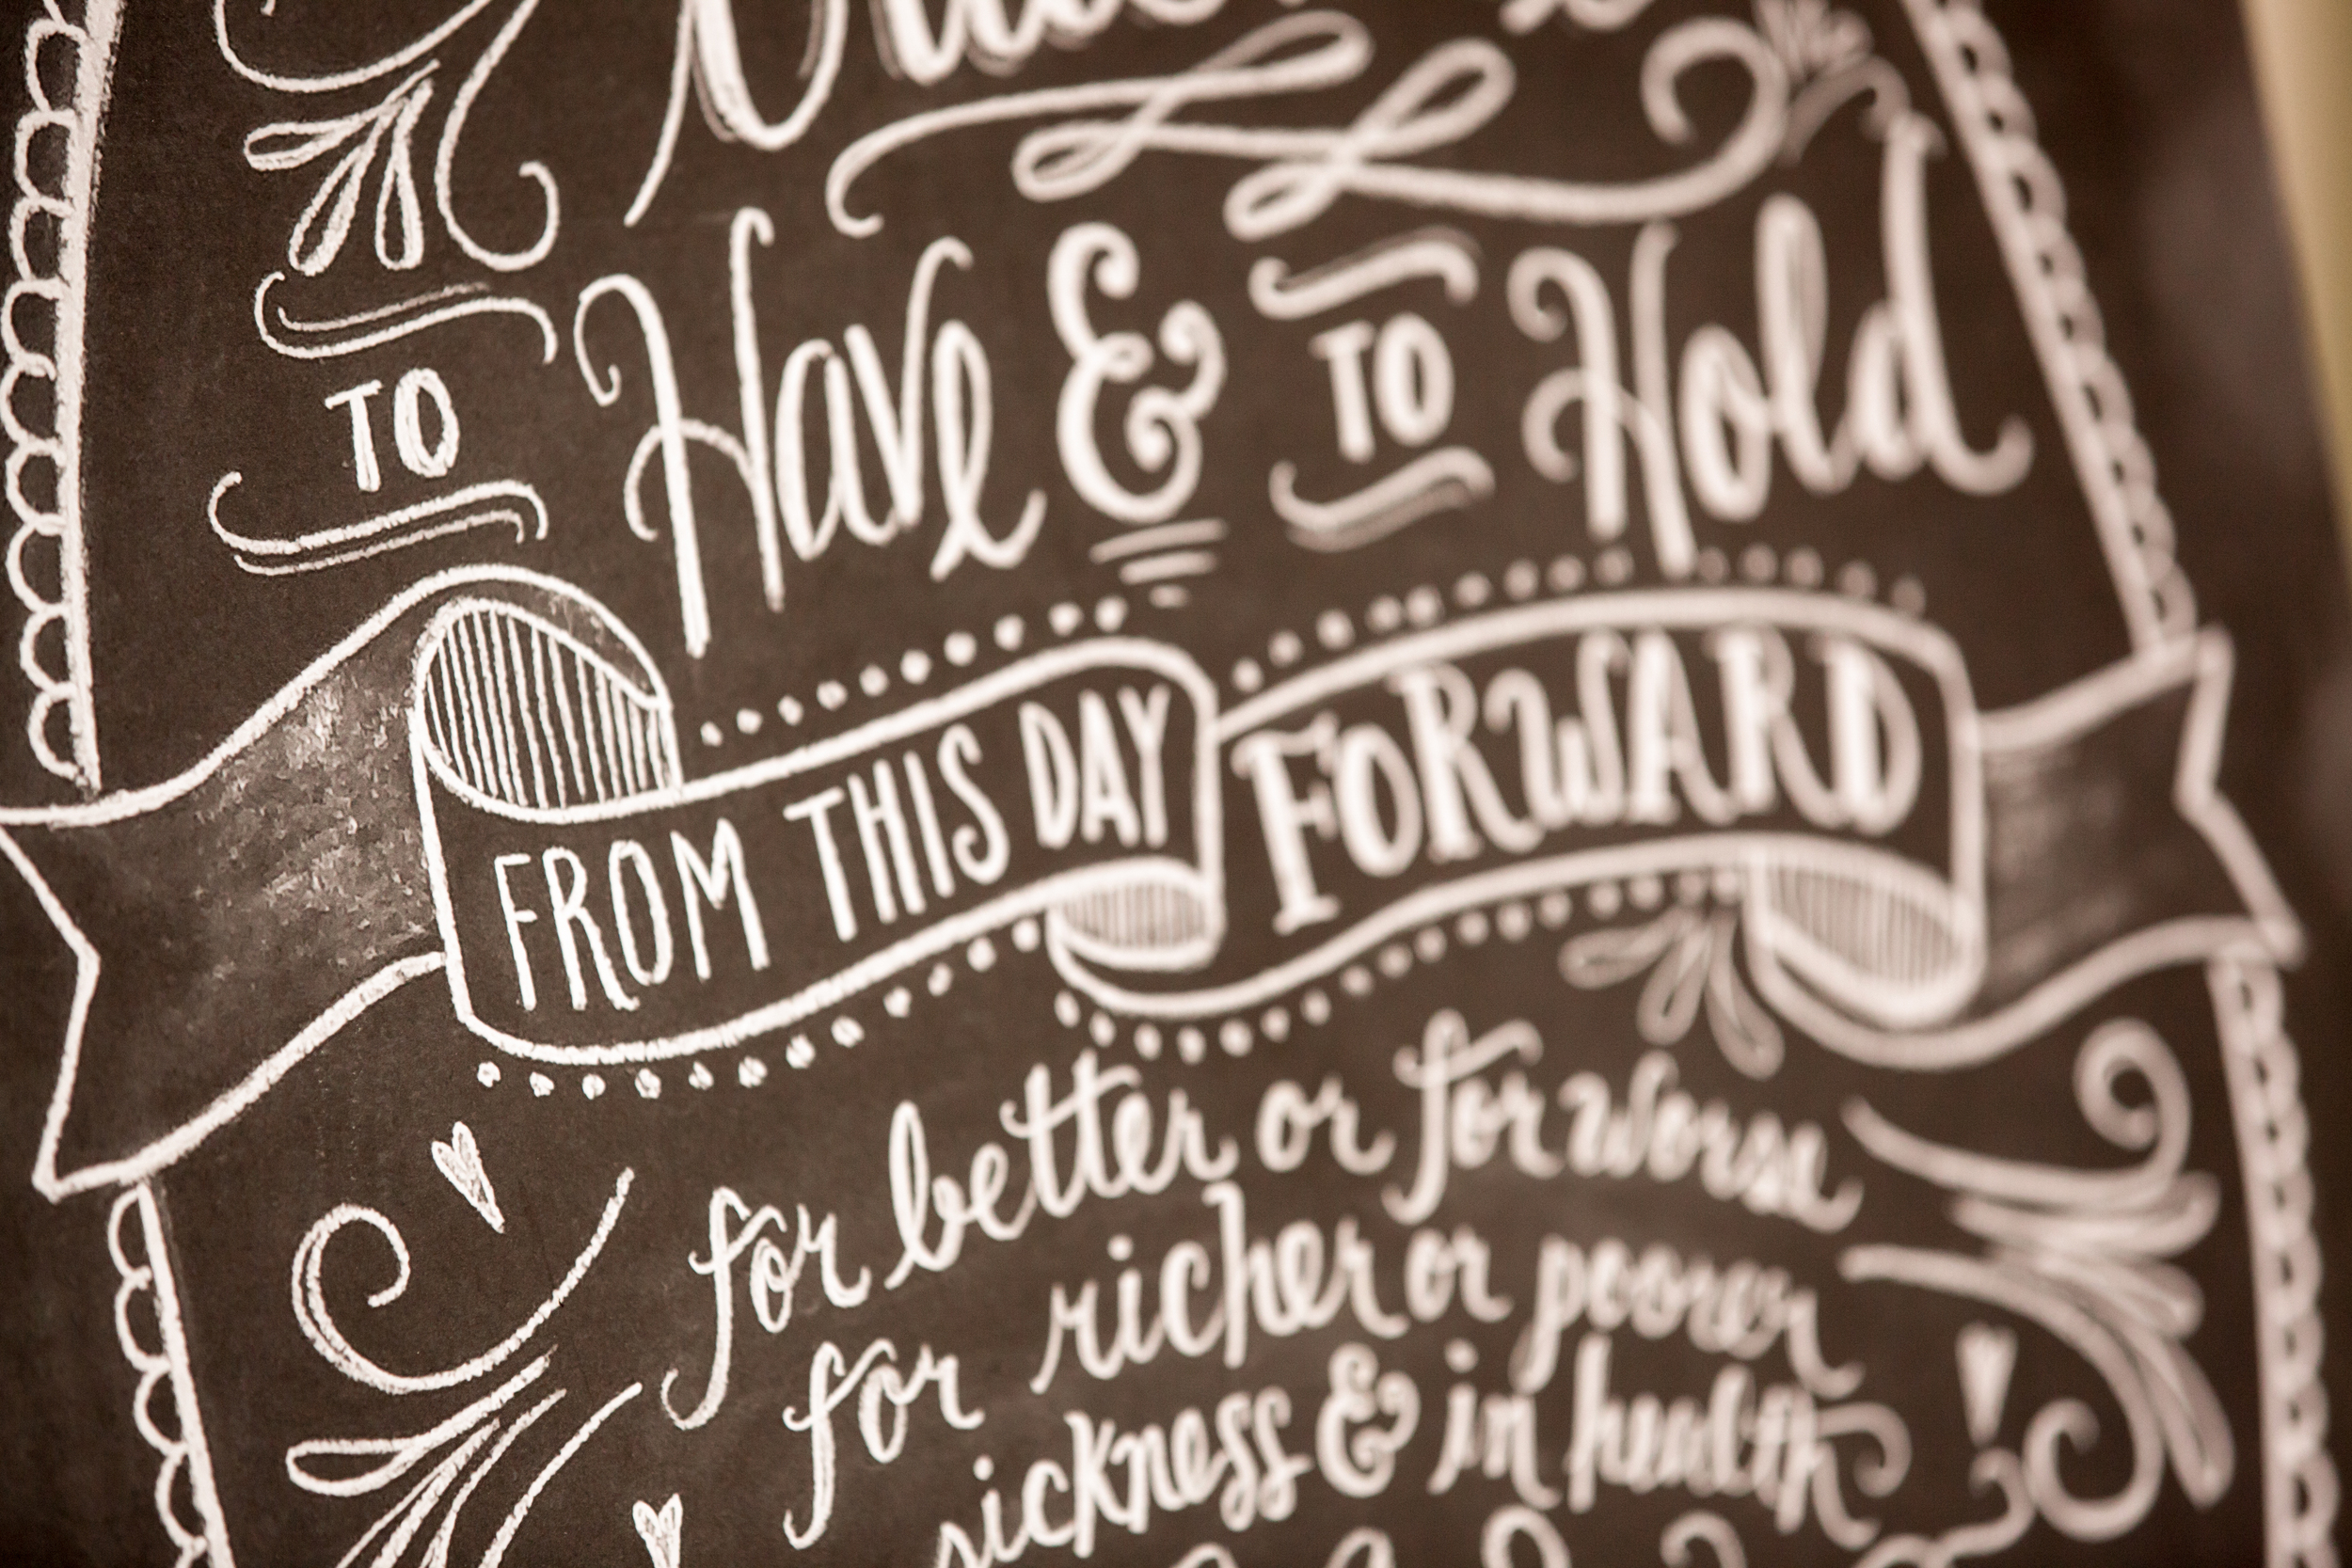 TO Have & TO Hold
FROM THIS DAY FORWARD
for better or for worse
for richer or poorer
sickness & in health